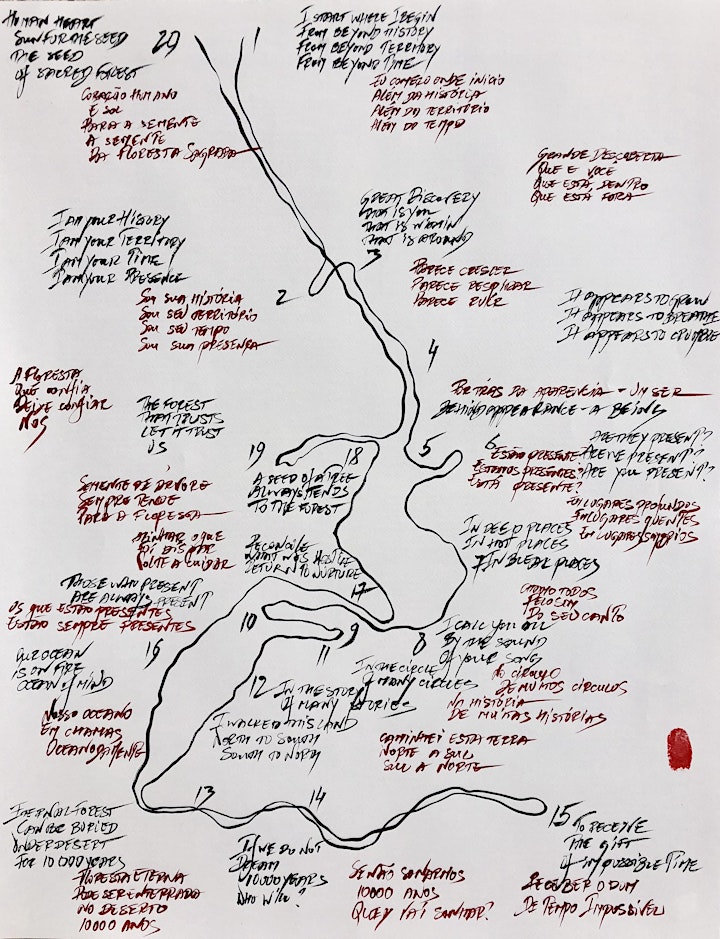 HUMAN HEART
SUN FOR THE SEED
THE SEED
of SACRED FOREST
20
CORAÇÃO HUMANO
E SOL
PARA A SEMENTE
A SEMENTE
DA FLORESTA SAGRADA
1
I START WHERE I BEGIN
FROM BEYOND HISTORY
FROM BEYOND TERRITORY
FROM BEYOND TIME
EU COMEÇO ONDE INICIO
ALÉM DA HISTÓRIA
ALÉM DA TERRITÓRIO
ALÉM DO TEMPO
GRANDE DESCOBERTA
QUE E VOCE
QUE ESTÁ, DENTRO
QUE ESTÁ FORA
GREAT DISCOVERY
THAT IS YOU
THAT IS WITHIN
THAT IS AROUND
3
I AM YOUR HISTORY
I AM YOUR TERRITORY
I AM YOUR TIME
I AM YOUR PRESENCE
2
SOU SUA HISTÓRIA
SOU SEU TERRITÓRIO
SOU SEU TEMPO
SOU SUA PRESENÇA
PARECE CRESCER
PARECE RESPIRAR
PARECE RUIR
IT APPEARS TO GROW
IT APPEARS TO BREATHE
IT APPEARS TO CRUMBLE
4
POR TRÁS DA APARENCIA - UM SER
BEHIND APPEARANCE - A BEING
5
A FLORESTA
QUE CONFIA
DEIXE CONFIAR
NOS
THE FOREST
THAT TRUSTS
LET IT TRUST
US
19
18
6
ARE THEY PRESENT?
ARE WE PRESENT?
ARE YOU PRESENT?
ESTÃO PRESENTE
ESTAMOS PRESENTES?
ESTÁ PRESENTE?
A SEED OF A TREE
ALWAYS TENDS
TO THE FOREST
SEMENTE DE ÁRVORE
SEMPRE TENDE
PARA A FLORESTA
EM LUGARES PROFUNDOS
EM LUGARES QUENTES
EM LUGARES SOMBRIOS
IN DEEP PLACES
IN HOT PLACES
IN BLEAK PLACES
7
RECONCILE
WHAT WAS HOSTILE
RETURN TO NURTURE
O QUE
VOLTE A CUIDAR
17
THOSE WHO PRESENT
ARE ALWAYS PRESENT
OS QUE ESTÃO PRESENTES
ESTÃO SEMPRE PRESENTES
16
CHAMO TODOS
PELO SOM
DO SEU CANTO
I CALL YOU ALL
BY THE SOUND
OF YOUR SONG
8
10
9
11
IN THE CIRCLE
OF MANY CIRCLES
NO CÍRCULO
DE MUITOS CÍRCULOS
12
IN THE STORY
OF MANY STORIES
NA HISTÓRIA
DE MUITAS HISTÓRIAS
OUR OCEAN
IS ON FIRE
OCEAN of MIND
NOSSO OCEANO
EM CHAMAS
OCEANO DA MENTE
I WALKED THIS LAND
NORTH TO SOUTH
SOUTH TO NORTH
CAMINHEI ESTA TERRA
NORTE A SUL
SUL A NORTE
13
14
15
ETERNAL FOREST
CAN BE BURIED
UNDER DESERT
FOR 10 000 YEARS
FLORESTA ETERNA
PODE SER ENTERRADA
NO DESERTO
10000 ANOS
IF WE DO NOT
DREAM
10000 YEARS
WHO WILL?
SE NÃO SONARMOS
10000 ANOS
QUEM VAI SONHAR?
TO RECEIVE
THE GIFT
of IMPOSSIBLE TIME
RECEBER O DOM
DE TEMPO IMPOSSÍVEL